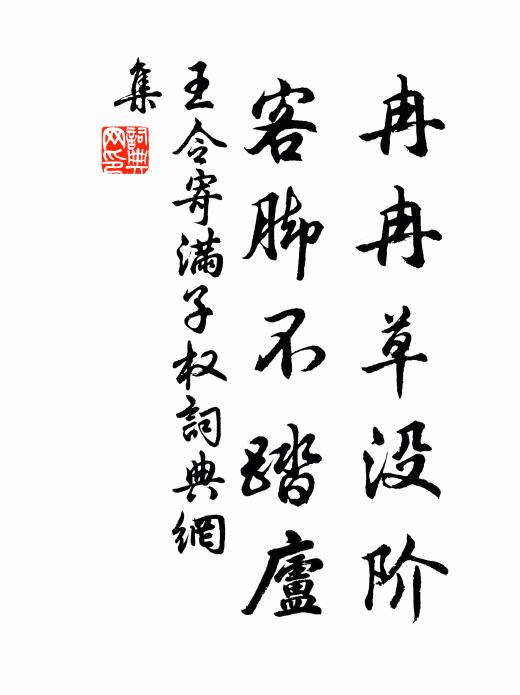 冉冉草没阶
客脚不踏廬
王令寄满子权詞典網
集
詞典网印